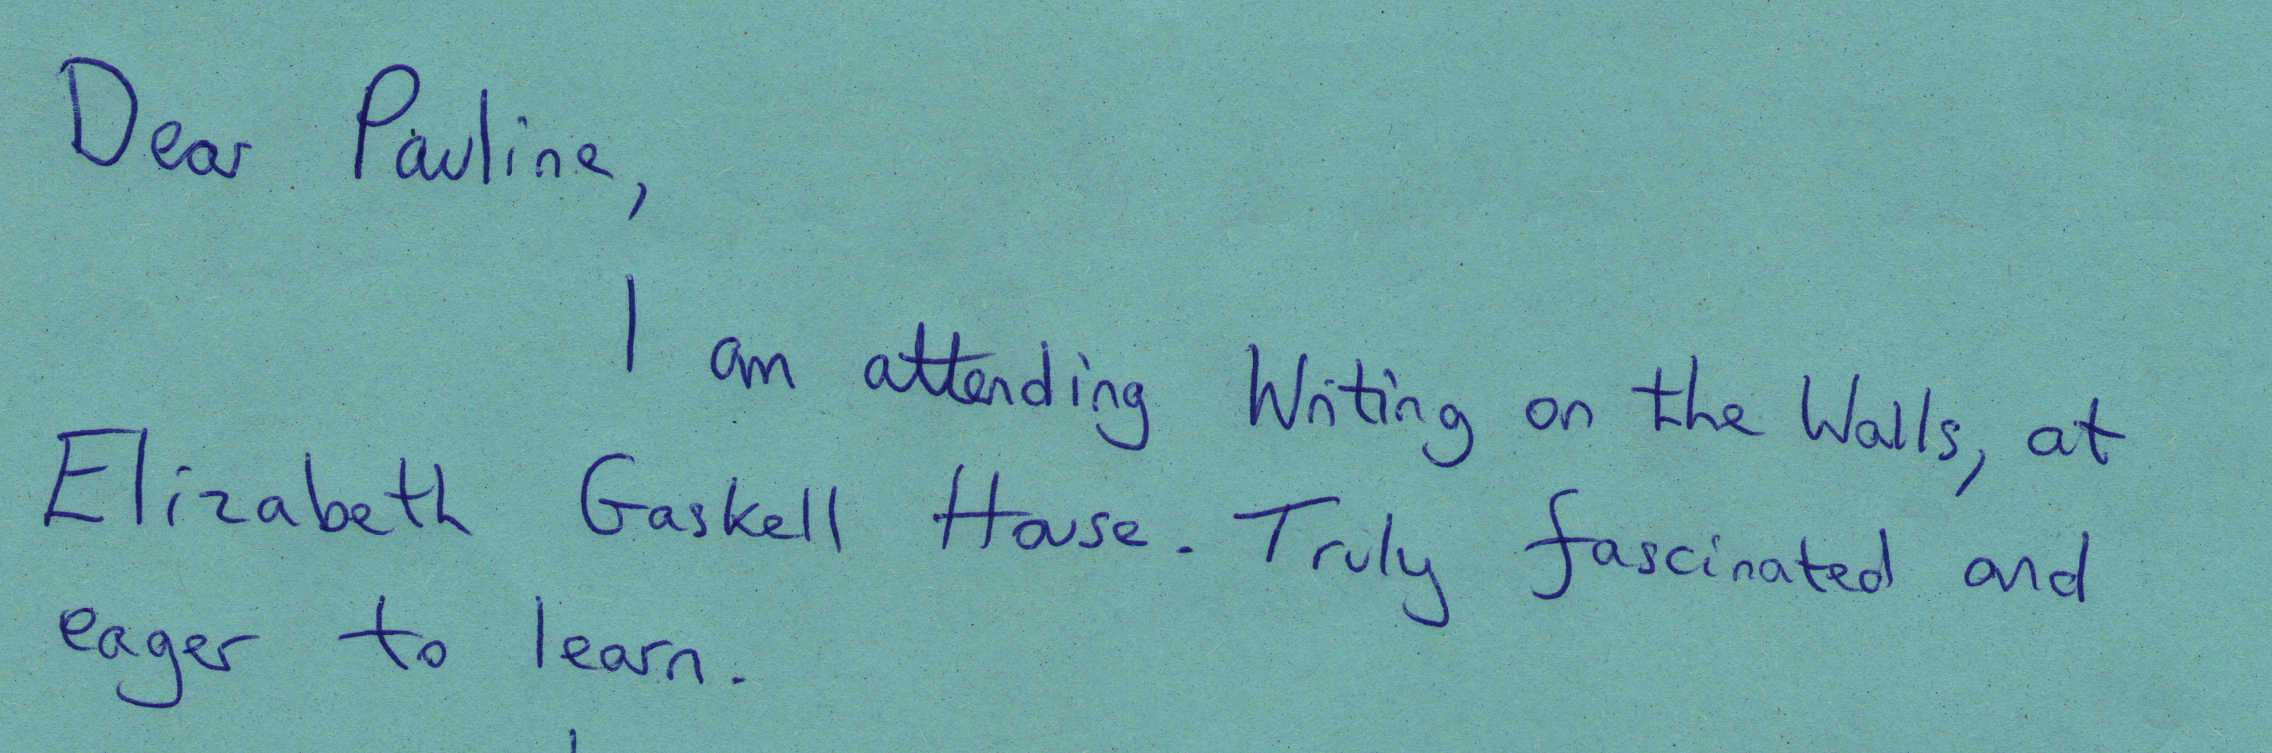 Dear Pauline,
I am attending Writing on the Walls, at
Elizabeth Gaskell House. Truly fascinated and
eager to learn.